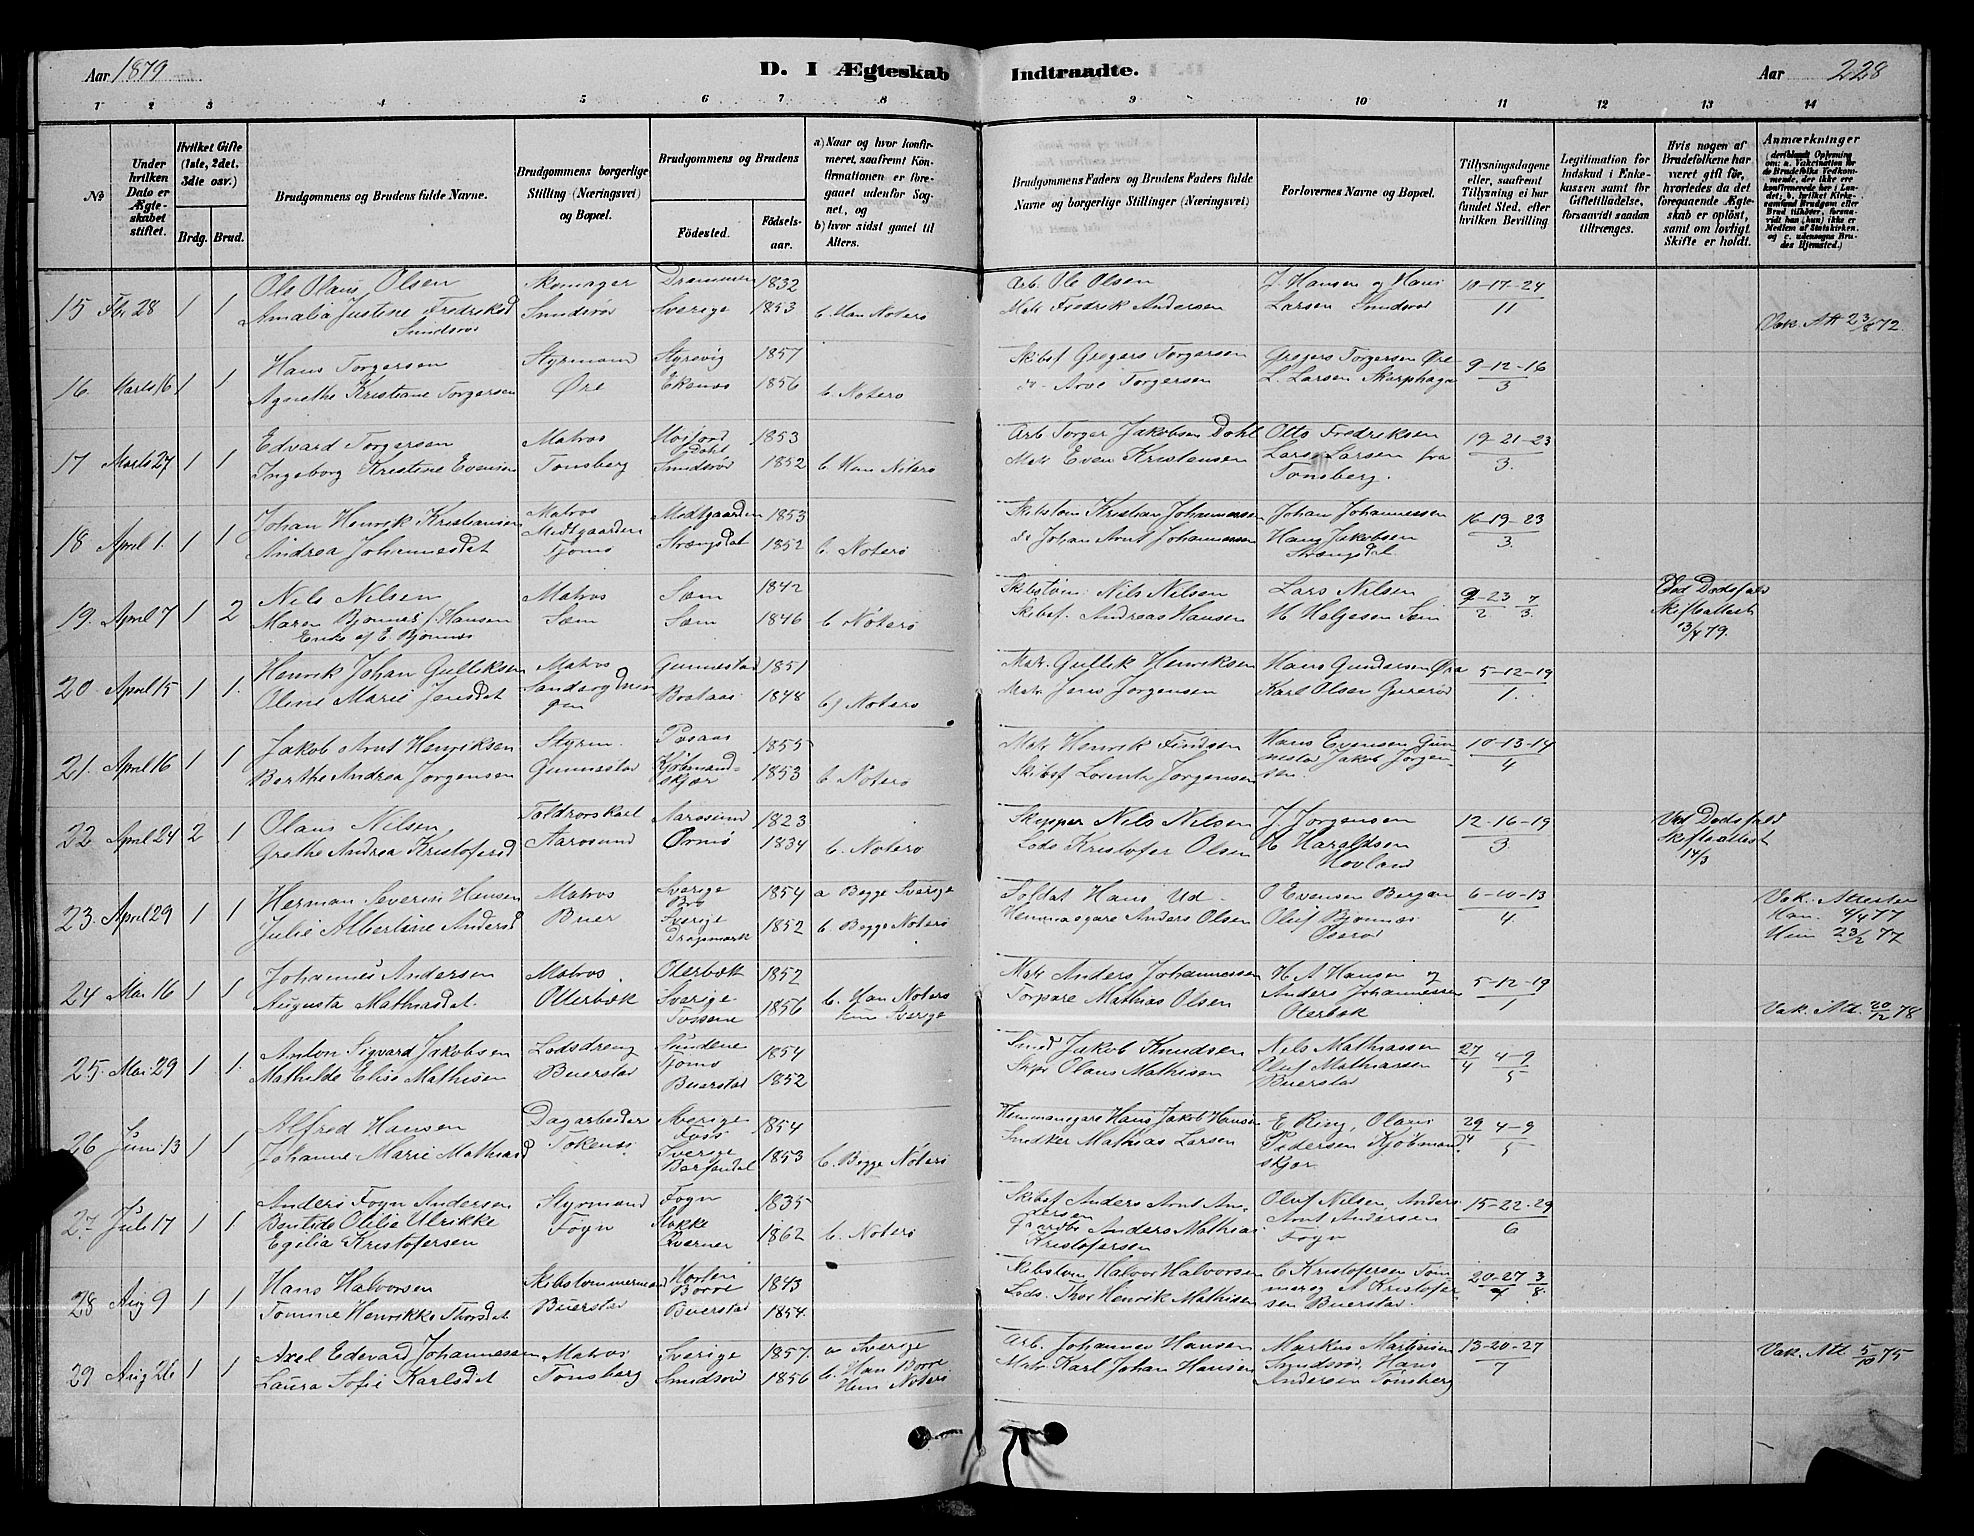 Aar 1879
D. I Ægteskab Indtraadte.
Aar 228
1 2 3 4 5 6 7 8 9 10 11 12 13 14
№
Under hvilken Dato er Ægteskabet stiftet.
Hvilket Gifte (1ste, 2det, 3die osv.)
Brdg. Brud.
Brudgommens og Brudens fulde Navne.
Brudgommens borgerlige Stilling (Næringsvei) og Bopæl.
Brudgommens og Brudens
Fødested. Fødselsaar.
a) Naar og hvor konfirmeret, saafremt Konfirmationen er foregaaet udenfor Sognet, og
b) hvor sidst gaaet til Alters.
Brudgommens Faders og Brudens Faders fulde Navne og borgerlige Stillinger (Næringsvei)
Forlovernes Navne og Bopæl.
Tillysningsdagene eller, saafremt Tillysning ei har fundet Sted, efter hvilken Bevilling
Legitimation for Indskud i Enkekassen samt for Giftetilladelse, forsaavidt saadan tiltrænges.
Hvis nogen af Brudefolkene har været gift før, hvorledes da det foregaaende Ægteskab er opløst, samt om lovligt Skifte er holdt.
Anmærkninger
15 Fbr 28 1 1 Ole Olaus Olsen Skomager Drammen 1832 Arb. Ole Olsen J Hansen og Hans 10-17-24
Amalia Justine Fredriksd Smidsrød Sverige 1853 b. Han Noterø Matr Fredrik Andersen Larsen Smidsrød 11
Smidsrød Vak. Att 23/8 72.
16. Marts 16 1 1 Hans Torgersen Styrmand Styrsvig 1857 Skibsf Gregers Torgersen Gregers Torgersen Øre 9-12-16
Agnethe Kristiane Torgersen Øre Ekenæs 1856 b. Noterø Do Arve Torgersen L. Larsen Skarphagen 3
17 Marts 27 1 1 Edvard Torgersen Matros Dahl 1853 Arb Torger Jakobsen Dahl Otto Fredriksen 19-21-23
Ingeborg Kristine Evensen Tønsberg Smidsrød 1852 b. Han Nøterø Matr Even Kristensen Lars Larsen fra 3.
Tønsberg.
18 April 1. 1 1 Johan Henrik Kristiansen Matros Midtgaarden 1853 Skibstøm Kristian Johannessen Johan Johannessen 16-19-23
Andrea Johannesdat Midtgaarden Tjømø Strængsdal 1852 b. Noterø Do Johan Arnt Johannessen Hans Jakobsen 3.
Strængsdal
19. April 7 1 2 Nils Nilsen Matros Sæm 1842 Skibstøm. Nils Nilsen Lars Nilsen 9-23 7 Ved Dødsfald
Maren Bjonnæs f. Hansen Sæm Sæm 1846 b Nøterø Skibsf. Andreas Hansen H Helgesen Sem 2 3. Skifteattest
Enke ef E. Bjonnæs 13/4 79.
20 April 15 1 1. Henrik Johan Gulliksen Matros Gunnestad 1851 Matr. Gullik Henriksen Hans Gundersen Øra 5-12-19
Oline Marie Jensdat 1848 b) Noterø Matr Jens Jorgensen Karl Olsen 1.
21. April 16 1 1 Jakob Arnt Henriksen Styrm. 1855 Matr Henrik Findsen Hans Evensen Gun 10-13-14
Berthe Andrea Jorgensen Gunnestad Kjøbmandskjær 1853 b Noterø Skibsf Lorents Jorgensen nestad Jakob Jorgensen. 4
22 April 24 2 1 Olaus Nilsen Toldroskarl Aarøsund 1823 Skipper Nils Nilsen J Jorgensen 12-16-19 Ved Dodsfald
Grethe Andrea Kristofersd Aarosund Ormø 1834 b. Noterø Lods Kristofer Olsen H Haraldsen 3 Skifteattest
Hovland 14/3
23. April 29 1 1 Herman Severin Hansen Matros Sverige 1854 a Begge Sverige Soldat Hans Ud O Evensen Bergan 6-10-13 Vak. Attester
Julie Albertine Andersd Buer Sverige Dragsmark 1852 b. Begge Noterø Hemmanegare Anders Olsen Oluf Bjonnæs 4 Han. 4/4 77
Oserød Hun 23/2 77
24 Mai 16 1 1 Johannes Andersen Matros. Oterbæk 1852 Matr Anders Johannessen H A Hansen og 5-12-19
Augusta Mathiasdat. Otterbæk Sverige 1856 b. Han Noterø Torpare Mathias Olsen Anders Johannessen 1
Tossene Hun Sverige Oterbæk Vak. Att. 20/12 78
25. Mai 29 1 1. Anton Sigvard Jakobsen Lodsdreng Sundene Tjømø 1854 Smed Jakob Knudsen Nils Mathiassen 27/4 4-9
Mathilde Elise Mathisen Buerstad Buerstad 1852 Skpr Olaus Mathisen Oluf Mathiassen 5
Buerstad
26 Juni 13 1 1 Alfred Hansen Dagarbeider Sverige Foss 1854 Hemmanegare Hans Jakob Hansen E Ring, Olaus 29/4 4-9
Johanne Marie Mathiasd Tokenæs Sverige Barfendal 1853 b. Begge Noterø Snidker Mathias Larsen Pedersen Kjøbmandskjær 5
27 Juli 17 1 1 Anders Fogn Andersen Styrmand Fogn 1835 Skibsf Anders Arnt Andersen Oluf Nilsen, Anders 15-22-29
Bentide Otilie Ulrikke Fogn Kverner 1862 b. Noterø Anders Mathias Arnt Andersen 6
Egilia Kristofersen Kristofersen Fogn
28 Aug 9 1 1 Hans Halvorsen Skibstømmermand Horten Borre 1843 Skibstøm Halvor Halvorsen E Kristofersen Tom 20-27 3
Tomine Henrikke Thorsdat Buerstad Buerstad 1854. Lods. Thor Henrik Mathisen mer og A Kristofer 7 8.
sen Buerstad.
29 Aug 26 1 1 Axel Edevard Johannessen Matros Sverige 1857. a Sverige Arb. Johannes Hansen Markus Martinsen 13-20-27 Vak. Att. 5/10 75
Laura Sofie Karlsdat Tonsberg Smidsrød 1856 b. Han Borre Matr. Karl Johan Hansen Smidsrød, Hans 7
Hun Noterø Andersen Tonsberg